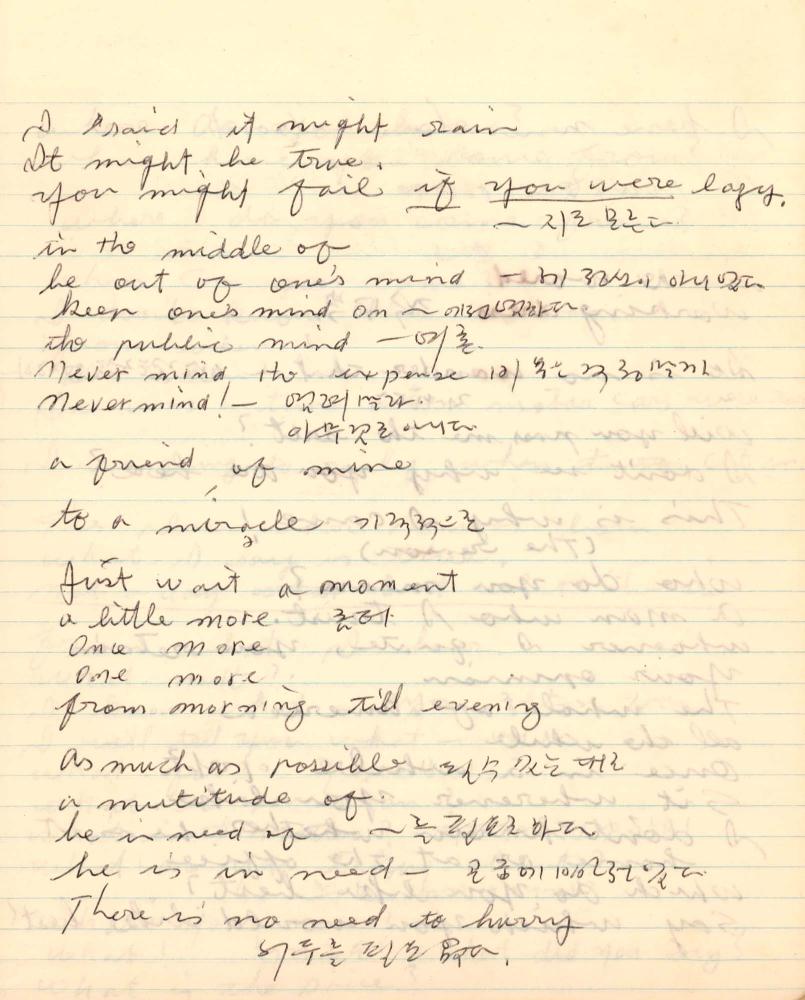 I said it might rain
It might be true.
you might fail if you were lagy.
~지도 모른다
in the middle of
be out of one's mind — 제 정신이 아니었다
keep one's mind on ~ 에 전념하다
the public mind — 여론
Never mind the expense 비용은 걱정 말라
Never mind! — 염려 말라.
아무것도 아니다
a friend of mine
to a miracle 기적적으로
Just wait a moment
a little more 좀더
Once more
One more
from morning till evening
As much as possible 될수 있는 대로
a mutitude of.
be in need of ~를 필요로 하다
he is in need — 곤궁에 빠져 있다
There is no need to hurry
서두를 필요 없다.